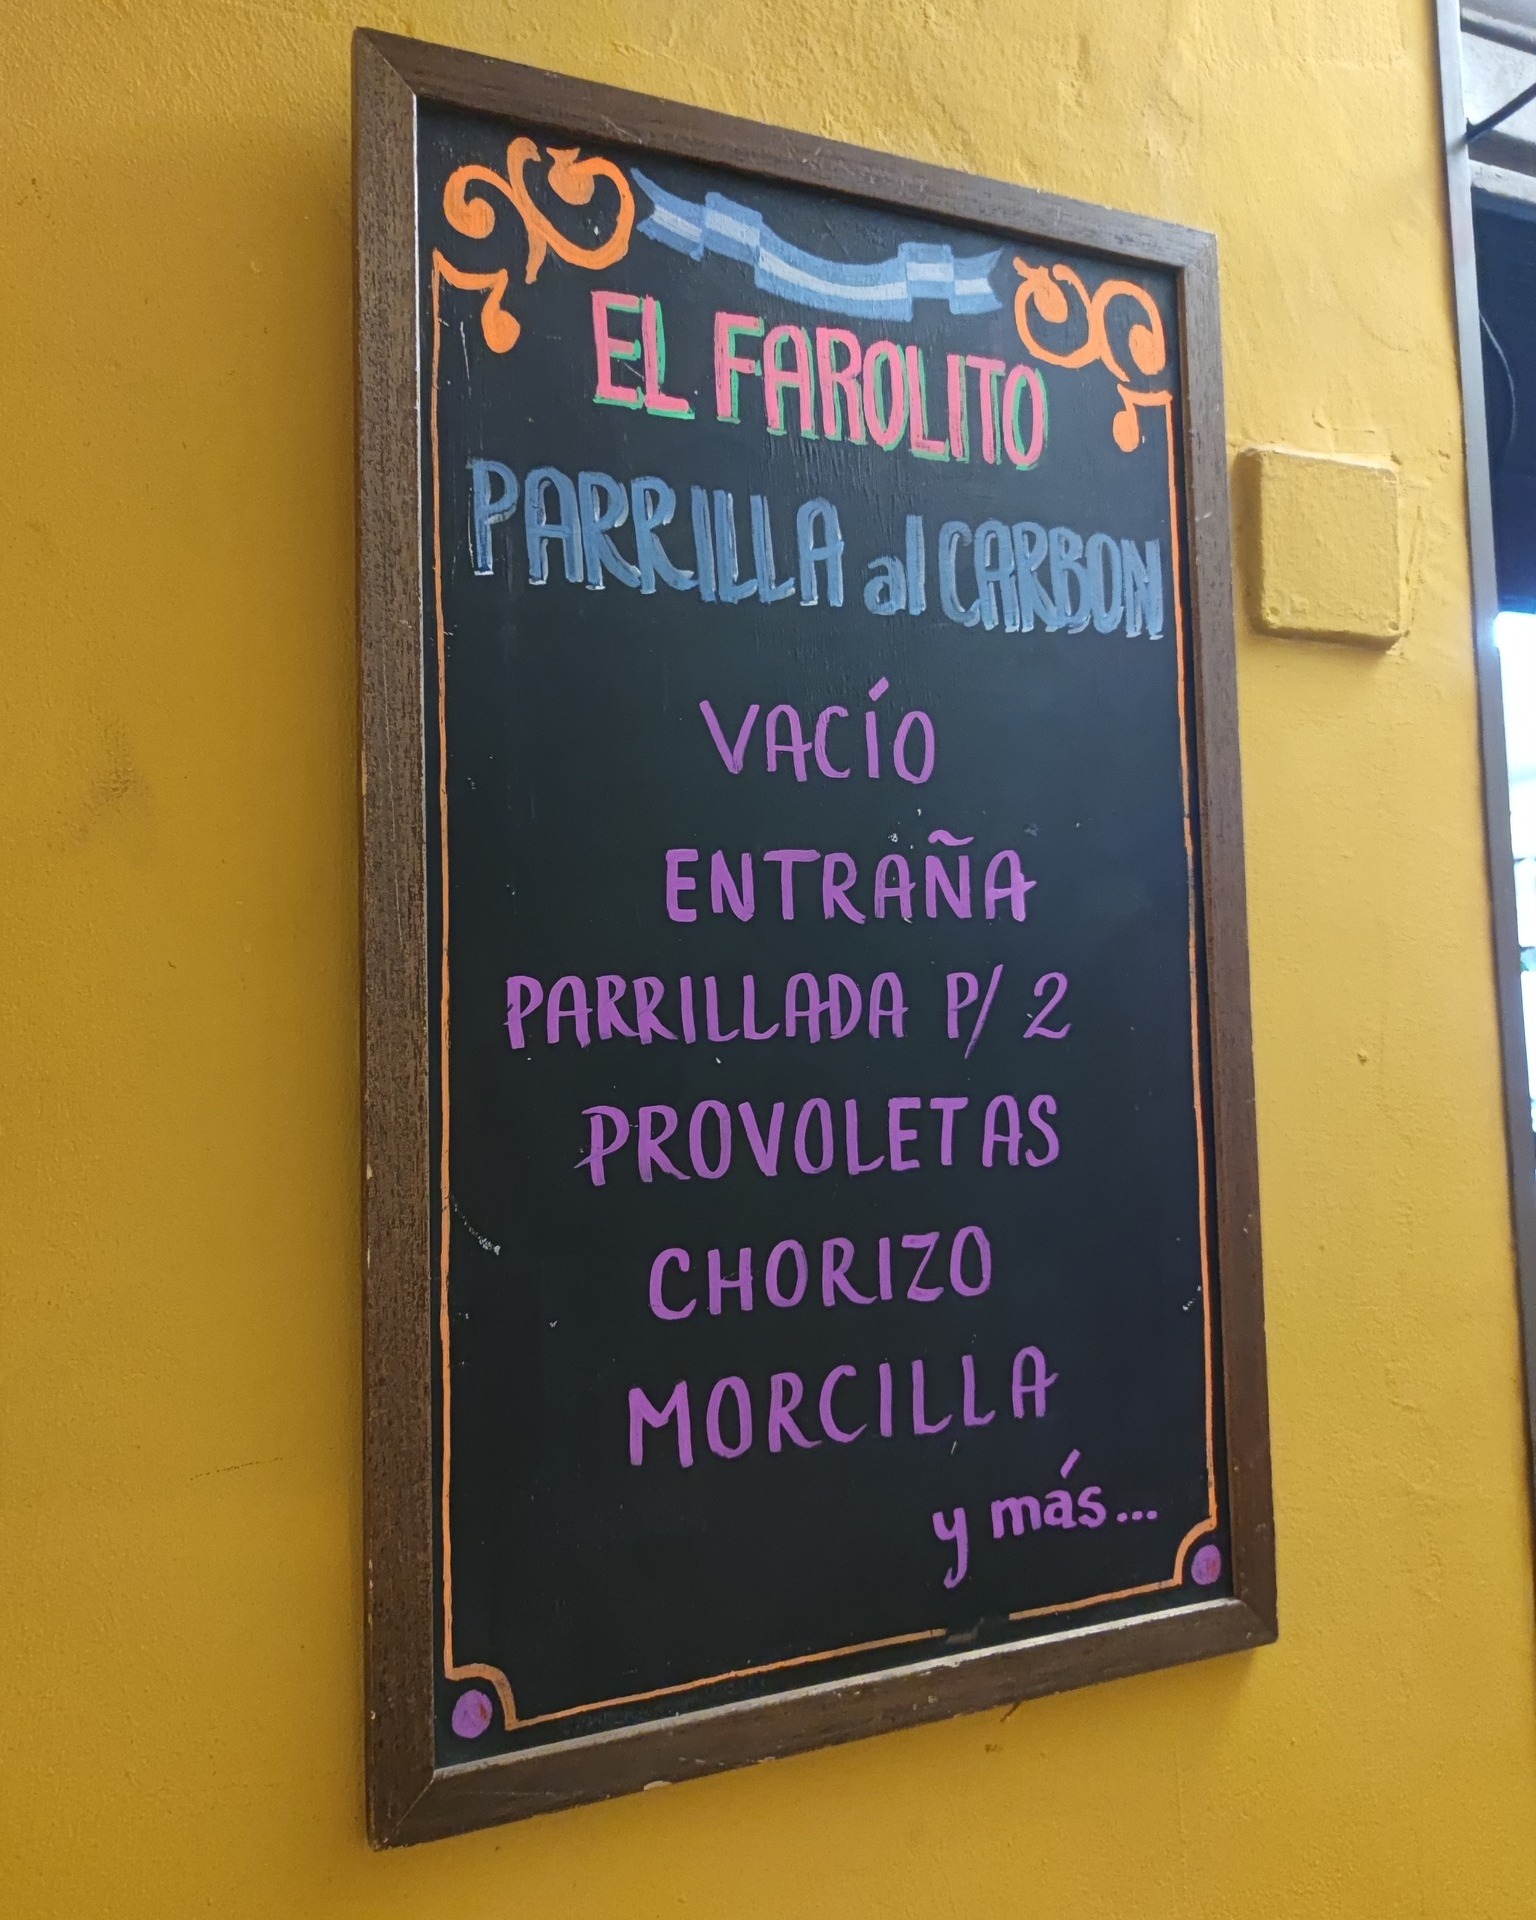 EL FAROLITO
PARRILLA al CARBON
VACÍO
ENTRAÑA
PARRILLADA P/ 2
PROVOLETAS
CHORIZO
MORCILLA
y más...